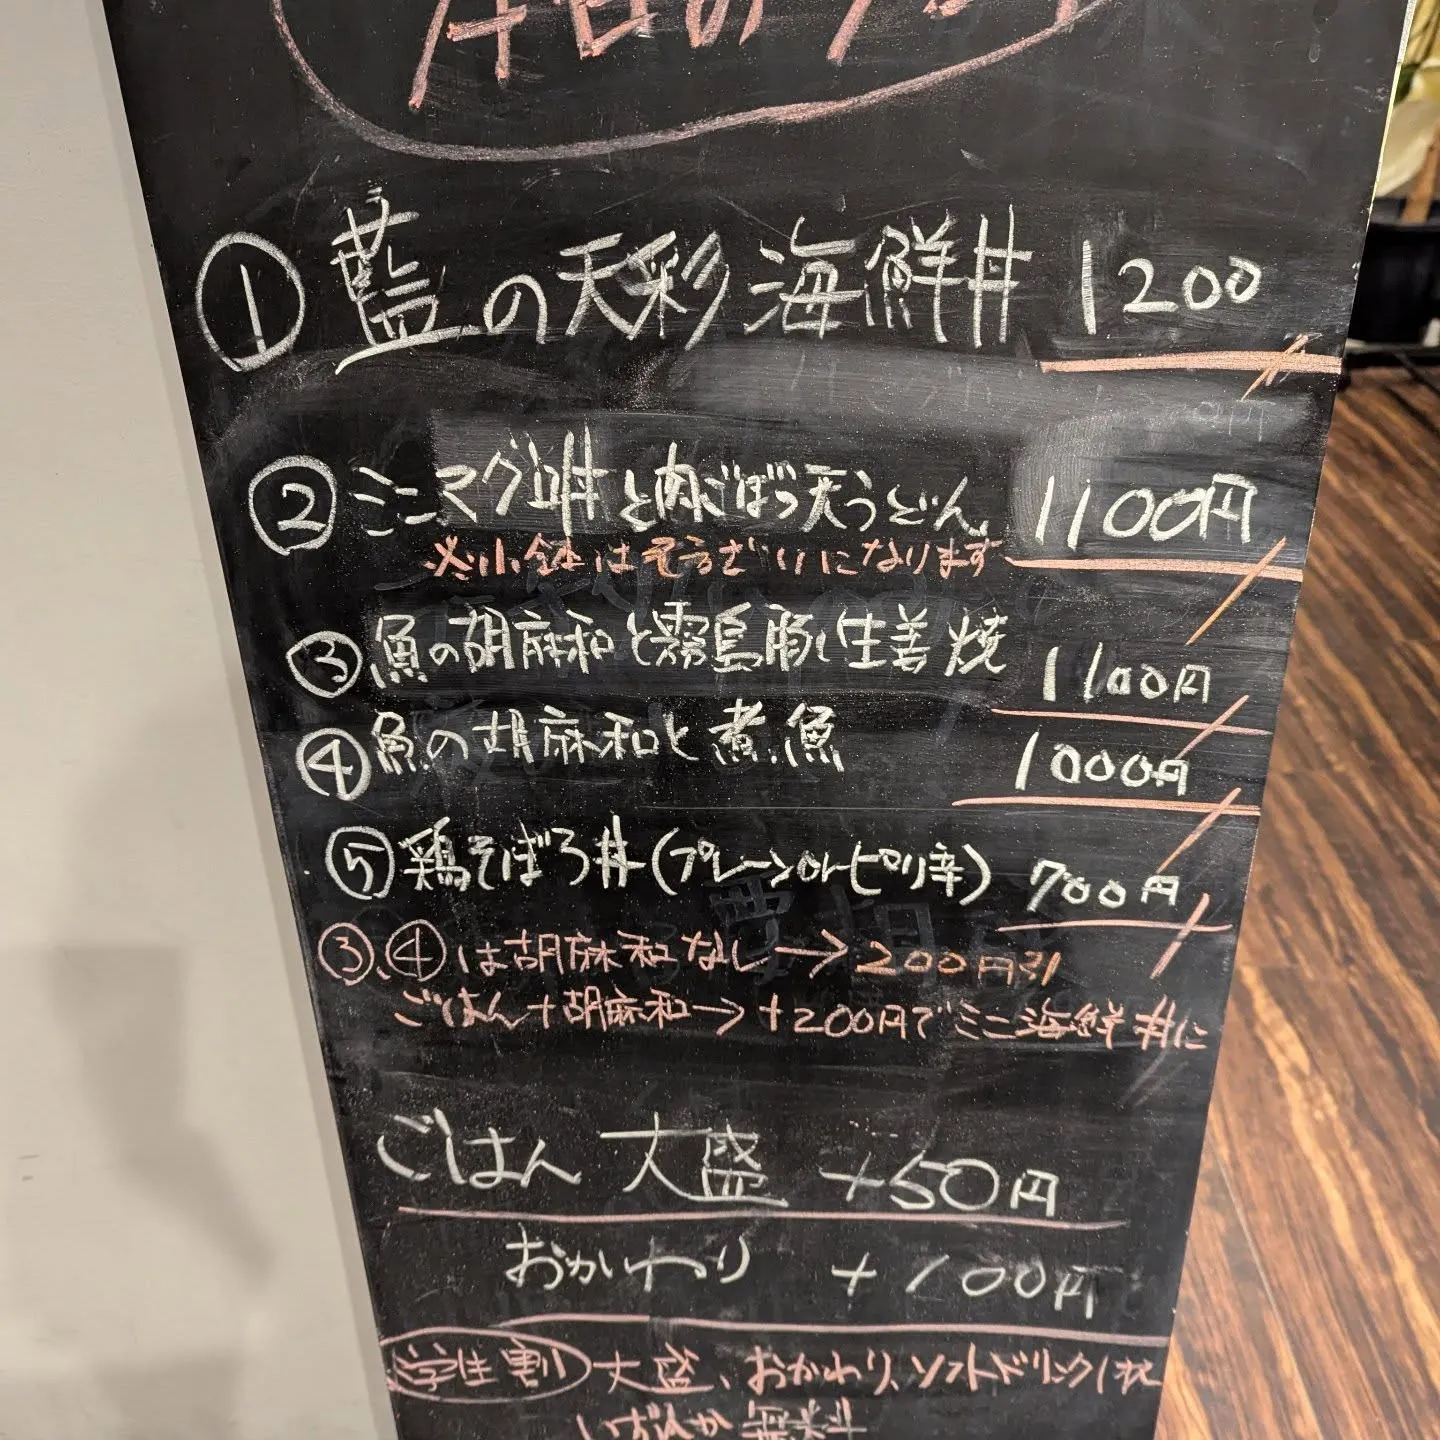 本日のランチ
① 藍の天彩海鮮丼 1200
② ミニマグロ丼と肉ごぼう天うどん 1100円
※小鉢はそうざいになります
③ 魚の胡麻和と霧島豚し生姜焼 1100円
④ 魚の胡麻和と煮魚 1000円
⑤ 鶏そぼろ丼(プレーンorピリ辛) 700円
③、④は胡麻和なし→200円引
ごはん+胡麻和→+200円でミニ海鮮丼に
ごはん 大盛 +50円
おかわり +100円
学生割 大盛、おかわり、ソフトドリンク1杯
いずれか無料